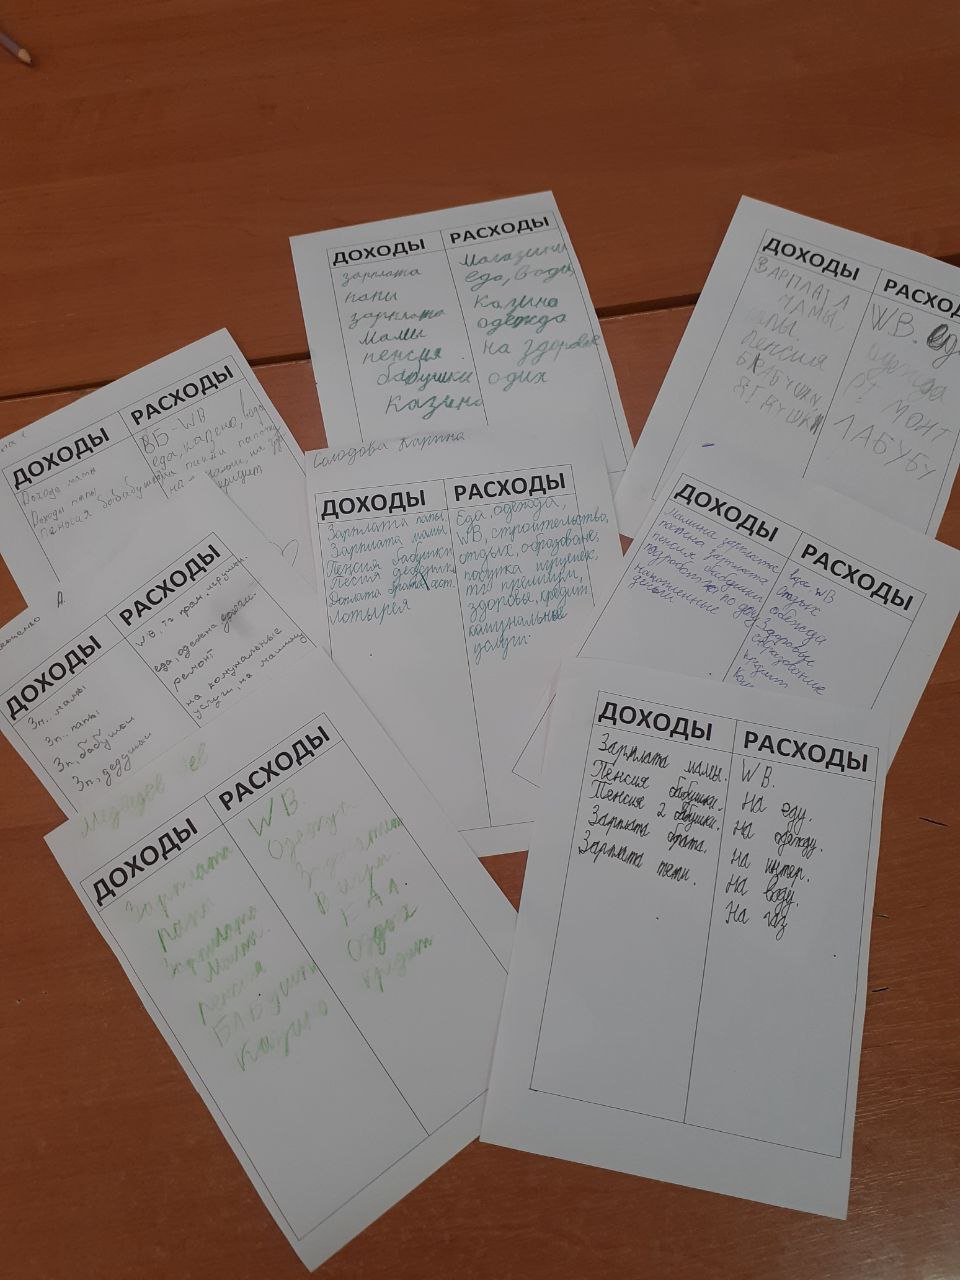 ДОХОДЫ
РАСХОДЫ
зарплата
папи
зарплата
мамы
пенсия
бабушки
казино
магазины
еда, вода
казино
одежда
на здоровье
одих
ДОХОДЫ
РАСХО
ЗАРПЛАТА
МАМЫ,
папы.
пенсия
ДЕДУШКИ
WB. еда
одежда
МОНТ
ЛАБУБУ
ДОХОДЫ
РАСХОДЫ
Доходы мамы
Доходы папы
пенсия
ВБ-WB
еда, казено, вода
на
кридит
Солодова Карина
ДОХОДЫ
РАСХОДЫ
Зарплата папы,
Зарплата мамы,
Пенсия бабушки
Песия дедушки
Доплата
Лотырея
Еда, одежда,
WB, строительство,
отдых, образование,
покупка игрушек,
тг премиум,
здоровье, кредит
комунальные
услуги.
ДОХОДЫ
РАСХОДЫ
Мамина зарплата
папина зарплата
пенсия бабушки
накопленные
деньги
WB
Отдых
одежда
Здоровье
образование
кредит
Ком
ДОХОДЫ
РАСХОДЫ
Зп.. мамы
Зп.. папы
Зп, бабушки
Зп, дедушки
WB, тг прем. игрушки
еда, одежда
ремонт
на комунальные
услуги, на машину
Медведев Лев
ДОХОДЫ
РАСХОДЫ
Зарплата
папы
Зарплата
Мамы.
пенсия
БАБУшки
казино
WB.
В игры.
ЕДА
Отдых
кридит
ДОХОДЫ
РАСХОДЫ
Зарплата мамы.
Пенсия бабушки.
Пенсия 2 бабушки.
Зарплата брата.
Зарплата тети.
WB.
На еду.
На одежду.
На интер.
На воду.
На газ